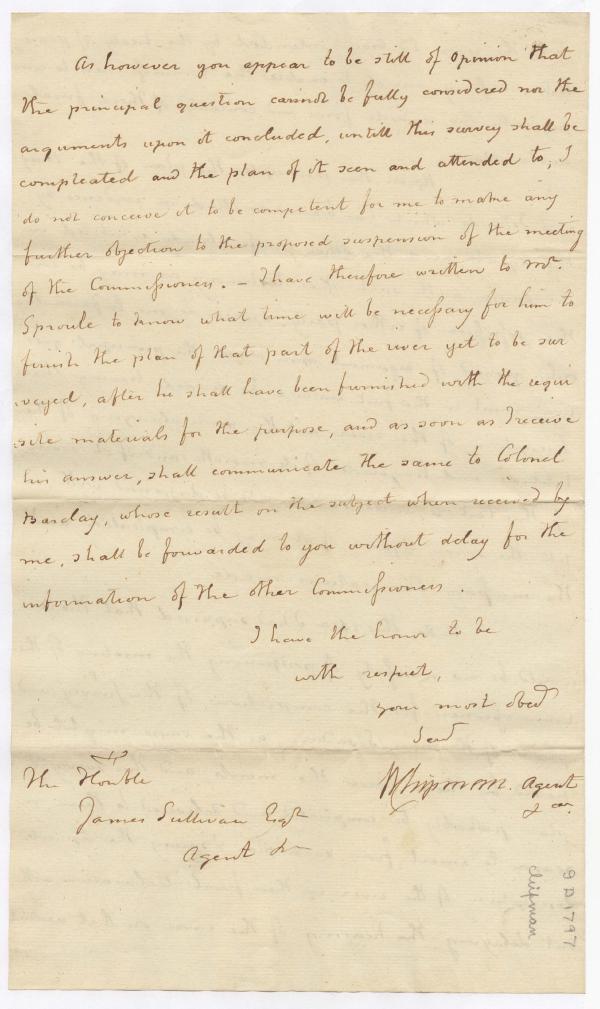 As however you appear to be still of Opinion that
the principal question cannot be fully considered nor the
arguments upon it concluded, untill this survey shall be
compleated and the plan of it seen and attended to, I
do not conceive it to be competent for me to make any
further objection to the proposed suspension of the meeting
of the Commissioners. – I have therefore written to Mr.
Sproule to know what time will be necessary for him to
finish the plan of that part of the river yet to be sur
veyed, after he shall have been furnished with the requi
site materials for the purpose, and as soon as I receive
his answer, shall communicate the same to Colonel
Barclay, whose result on the subject when received by
me, shall be forwarded to you without delay for the
information of the other Commissioners.
I have the honor to be
with respect,
your most obed
Serv
The Honble
James Sullivan Esqr
Agent &c
WChipman. Agent
&ca.
9 D 1797
Chipman